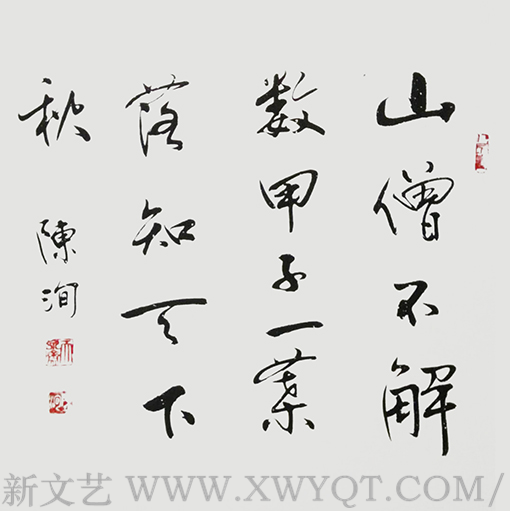 山僧不解
数甲子一葉
落知天下
秋 陳洵
新文艺 WWW.XWYQT.COM/